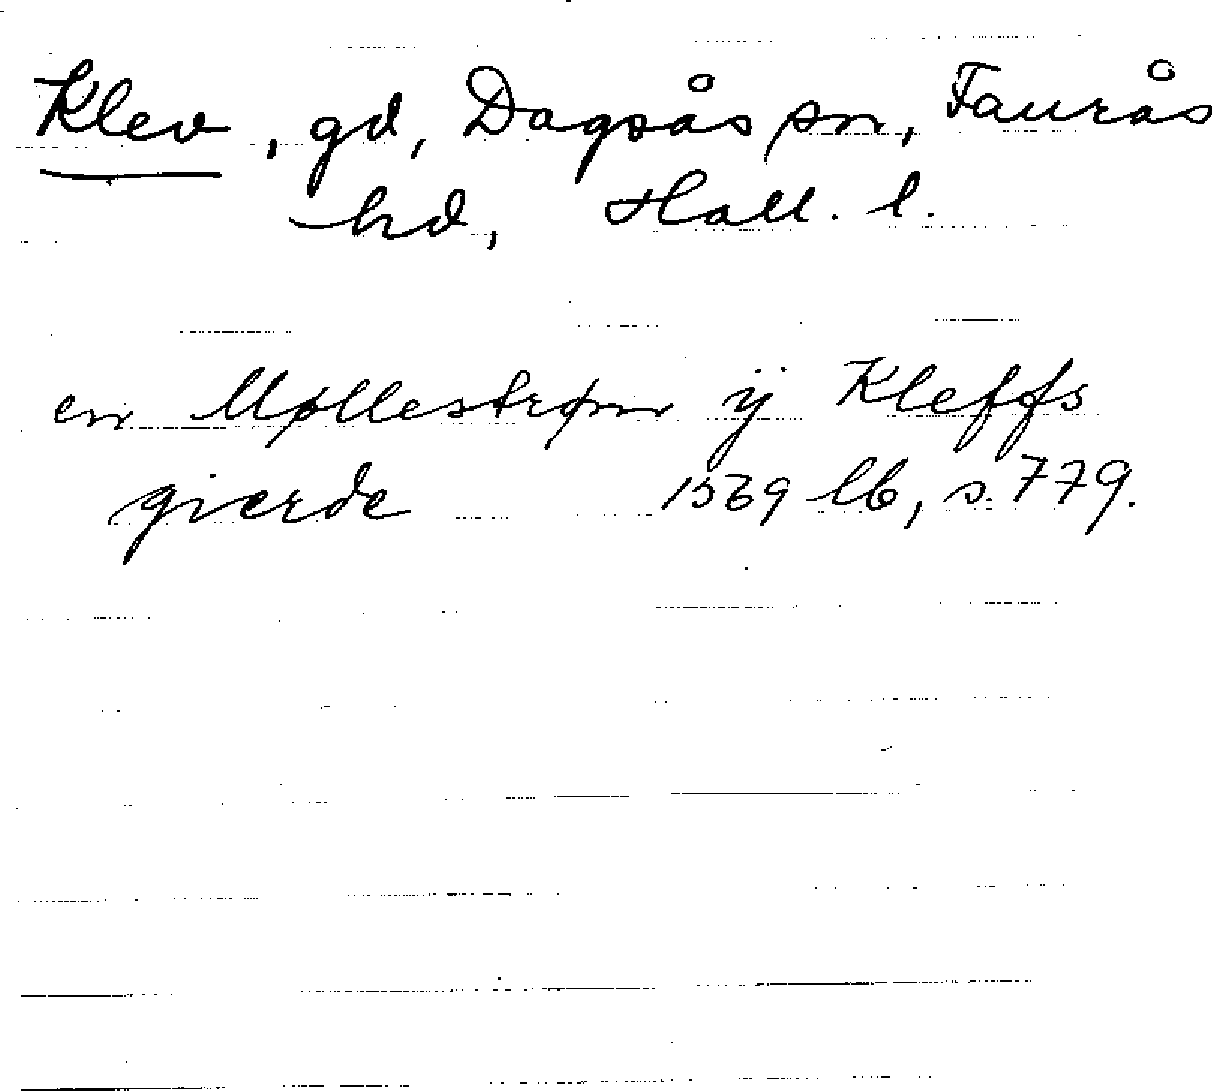 Klev, gd, Dagsås sn, Faurås
hd, Hall. l.
en Møllestrøm ÿ Kleffs
gierde 1569 lb, s. 779.